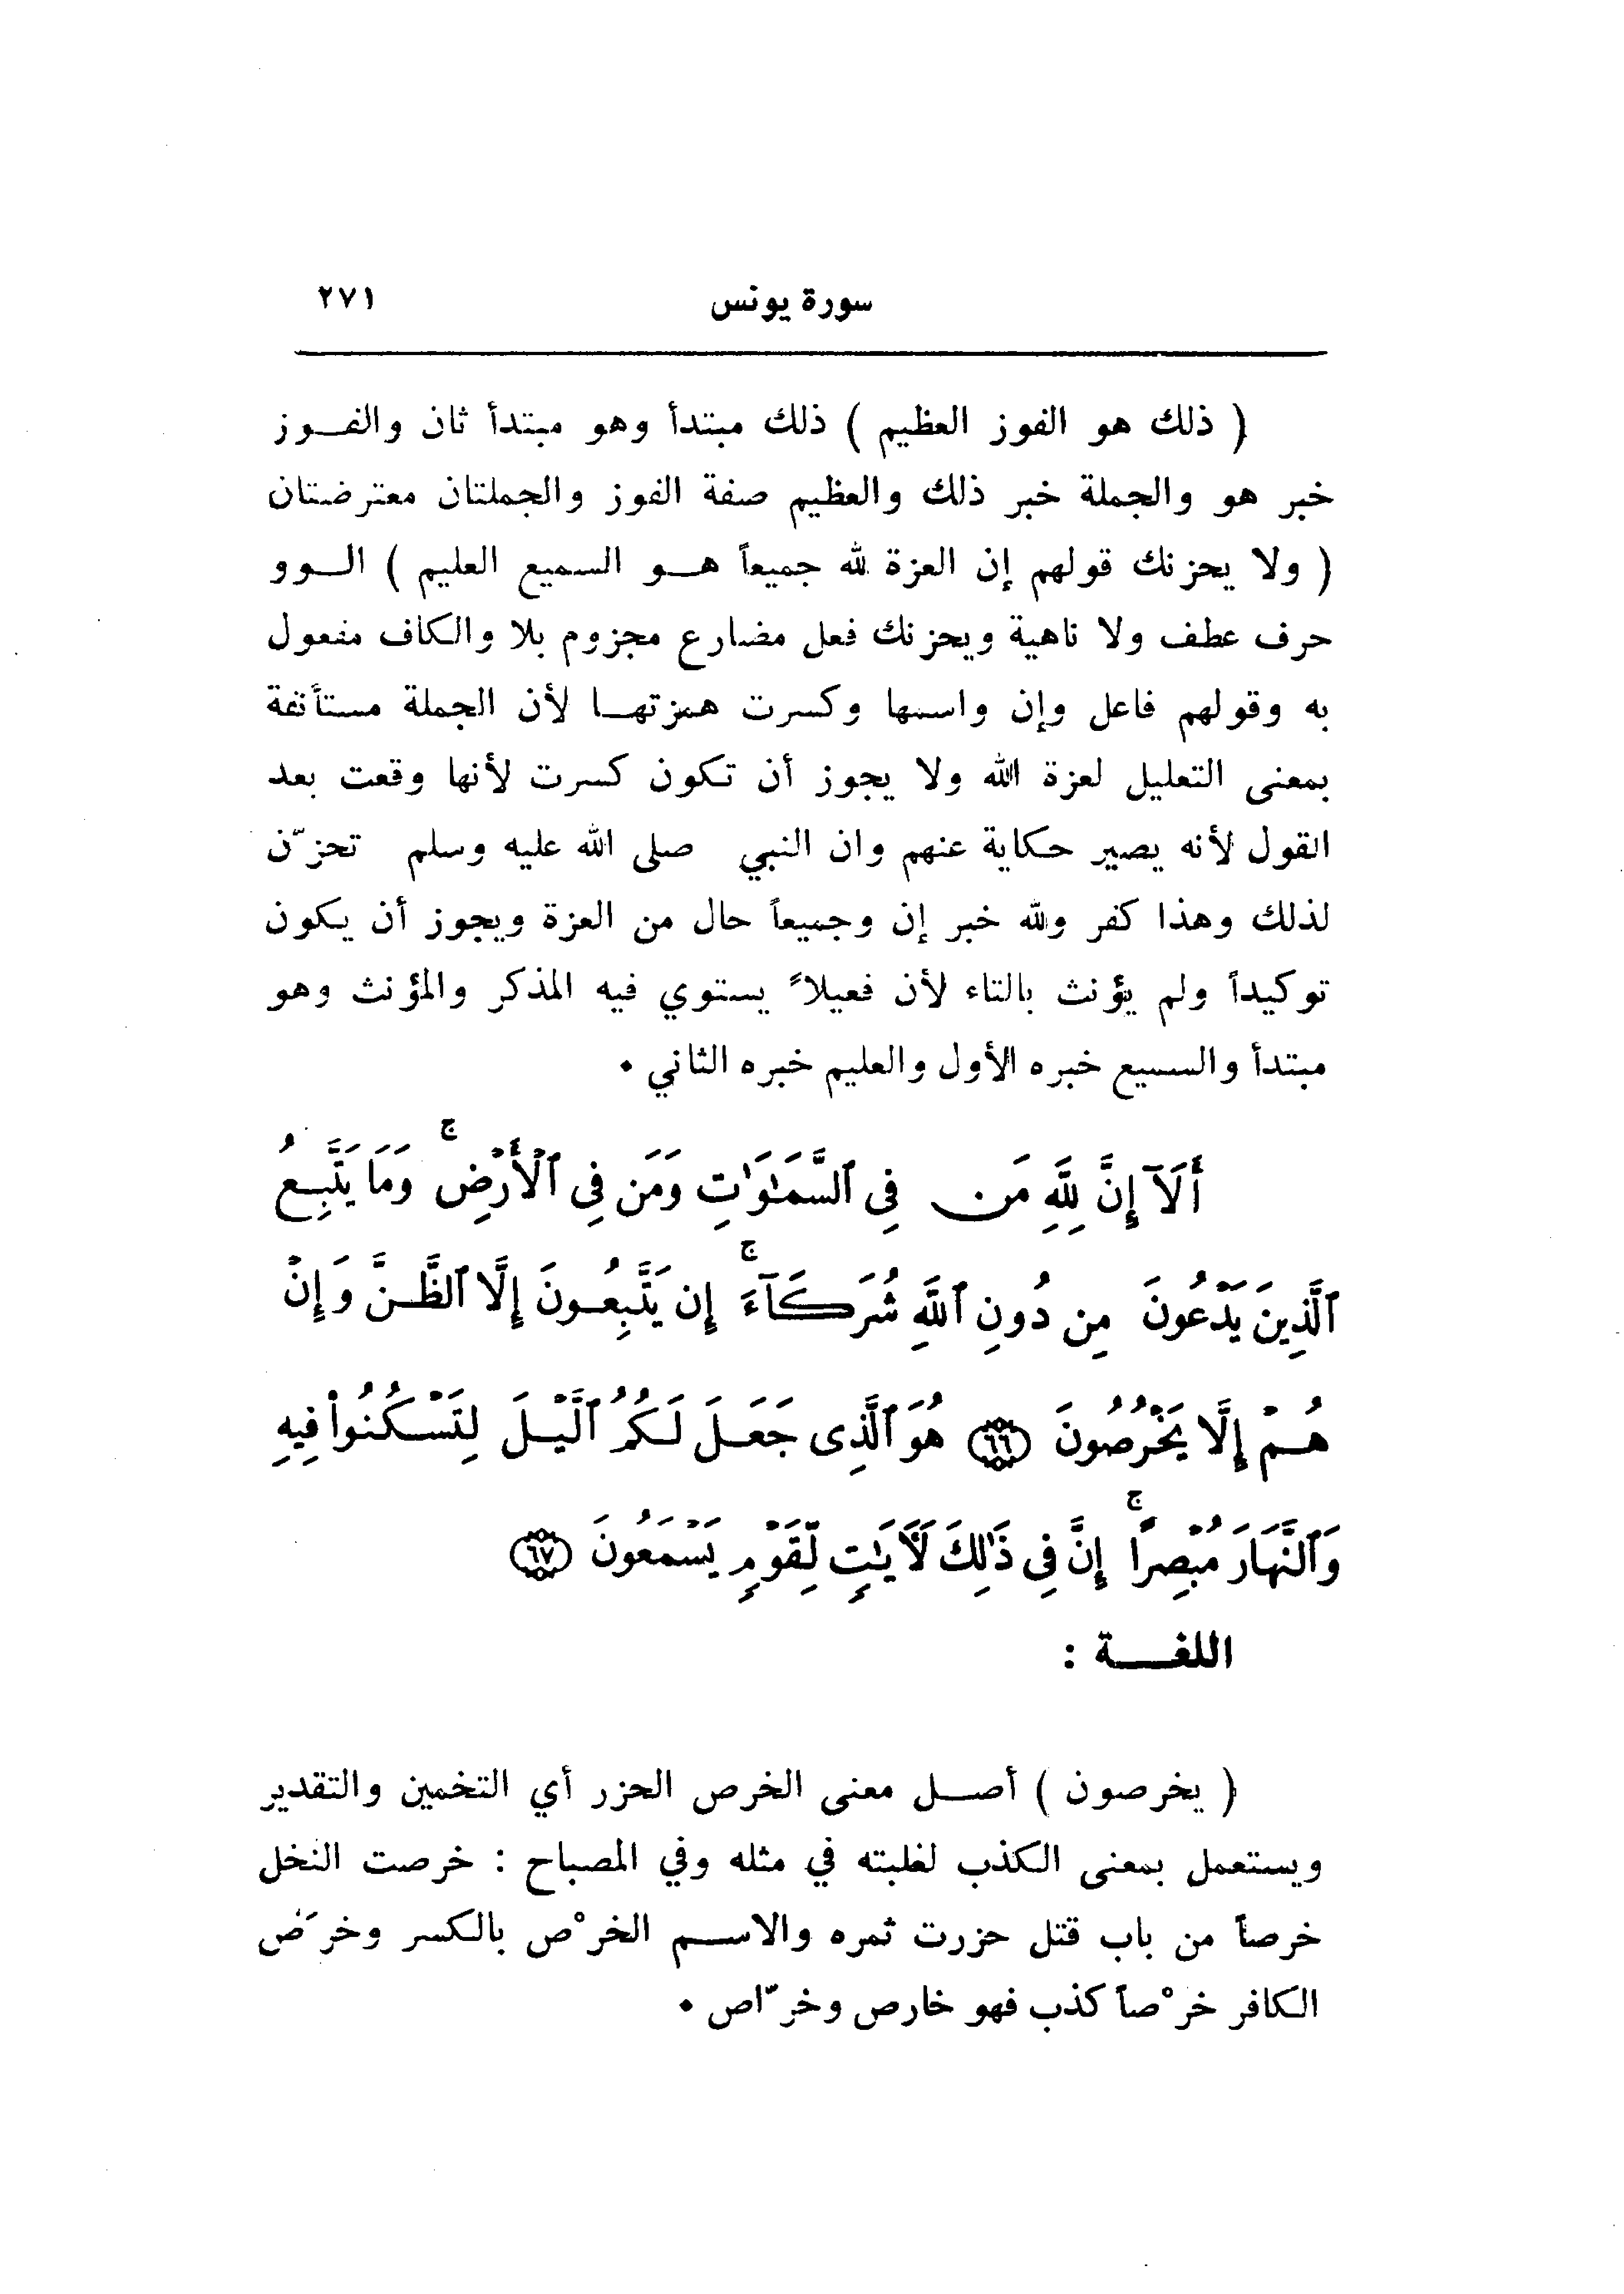 سورة يونس ٢٧١
( ذلك هو الفوز العظيم ) ذلك مبتدأ وهو مبتدأ ثان والفـوز
خبر هو والجملة خبر ذلك والعظيم صفة الفوز والجملتان معترضتان
( ولا يحزنك قولهم إن العزة لله جميعاً هـو السميع العليم ) الـوو
حرف عطف ولا ناهية ويحزنك فعل مضارع مجزوم بلا والكاف مفعول
به وقولهم فاعل وإن واسمها وكسرت همزتهـا لأن الجملة مستأنفة
بمعنى التعليل لعزة الله ولا يجوز أن تكون كسرت لأنها وقعت بعد
القول لأنه يصير حكاية عنهم وان النبي صلى الله عليه وسلم تحزّن
لذلك وهذا كفر ولله خبر إن وجميعاً حال من العزة ويجوز أن يكون
توكيداً ولم يؤنث بالتاء لأن فعيلاً يستوي فيه المذكر والمؤنث وهو
مبتدأ والسميع خبره الأول والعليم خبره الثاني •
أَلَآ إِنَّ لِلَّهِ مَن فِى ٱلسَّمَـٰوَٰتِ وَمَن فِى ٱلْأَرْضِ ۚ وَمَا يَتَّبِعُ
ٱلَّذِينَ يَدْعُونَ مِن دُونِ ٱللَّهِ شُرَكَآءَ ۚ إِن يَتَّبِعُونَ إِلَّا ٱلظَّنَّ وَإِنْ
هُمْ إِلَّا يَخْرُصُونَ ﴿٦٦﴾ هُوَ ٱلَّذِى جَعَلَ لَكُمُ ٱلَّيْلَ لِتَسْكُنُوا۟ فِيهِ
وَٱلنَّهَارَ مُبْصِرًا ۚ إِنَّ فِى ذَٰلِكَ لَـَٔايَـٰتٍ لِّقَوْمٍ يَسْمَعُونَ ﴿٦٧﴾
اللغـــة :
( يخرصون ) أصـل معنى الخرص الحزر أي التخمين والتقدير
ويستعمل بمعنى الكذب لغلبته في مثله وفي المصباح : خرصت النخل
خرصاً من باب قتل حزرت ثمره والاسـم الخرْص بالكسر وخرَض
الكافر خرْصاً كذب فهو خارص وخرّاص •